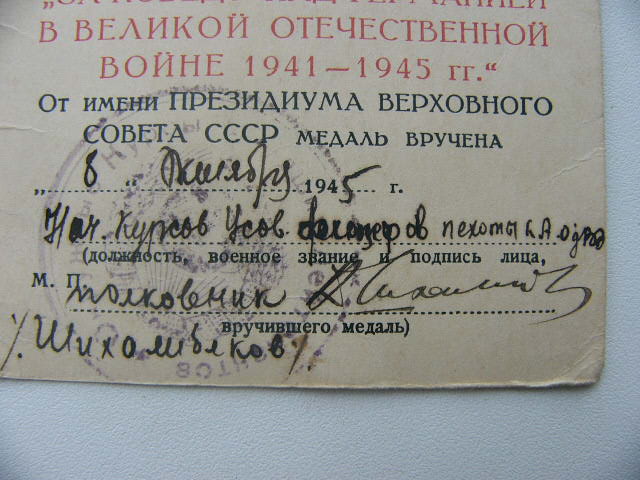 „ЗА ПОБЕДУ НАД ГЕРМАНИЕЙ
В ВЕЛИКОЙ ОТЕЧЕСТВЕННОЙ
ВОЙНЕ 1941—1945 гг.“
От имени ПРЕЗИДИУМА ВЕРХОВНОГО
СОВЕТА СССР МЕДАЛЬ ВРУЧЕНА
„ 8 „ 1945 г.
Нач. Курсов Усов. офицеров пехоты
(должность, военное звание и подпись лица,
М. П. полковник
вручившего медаль)